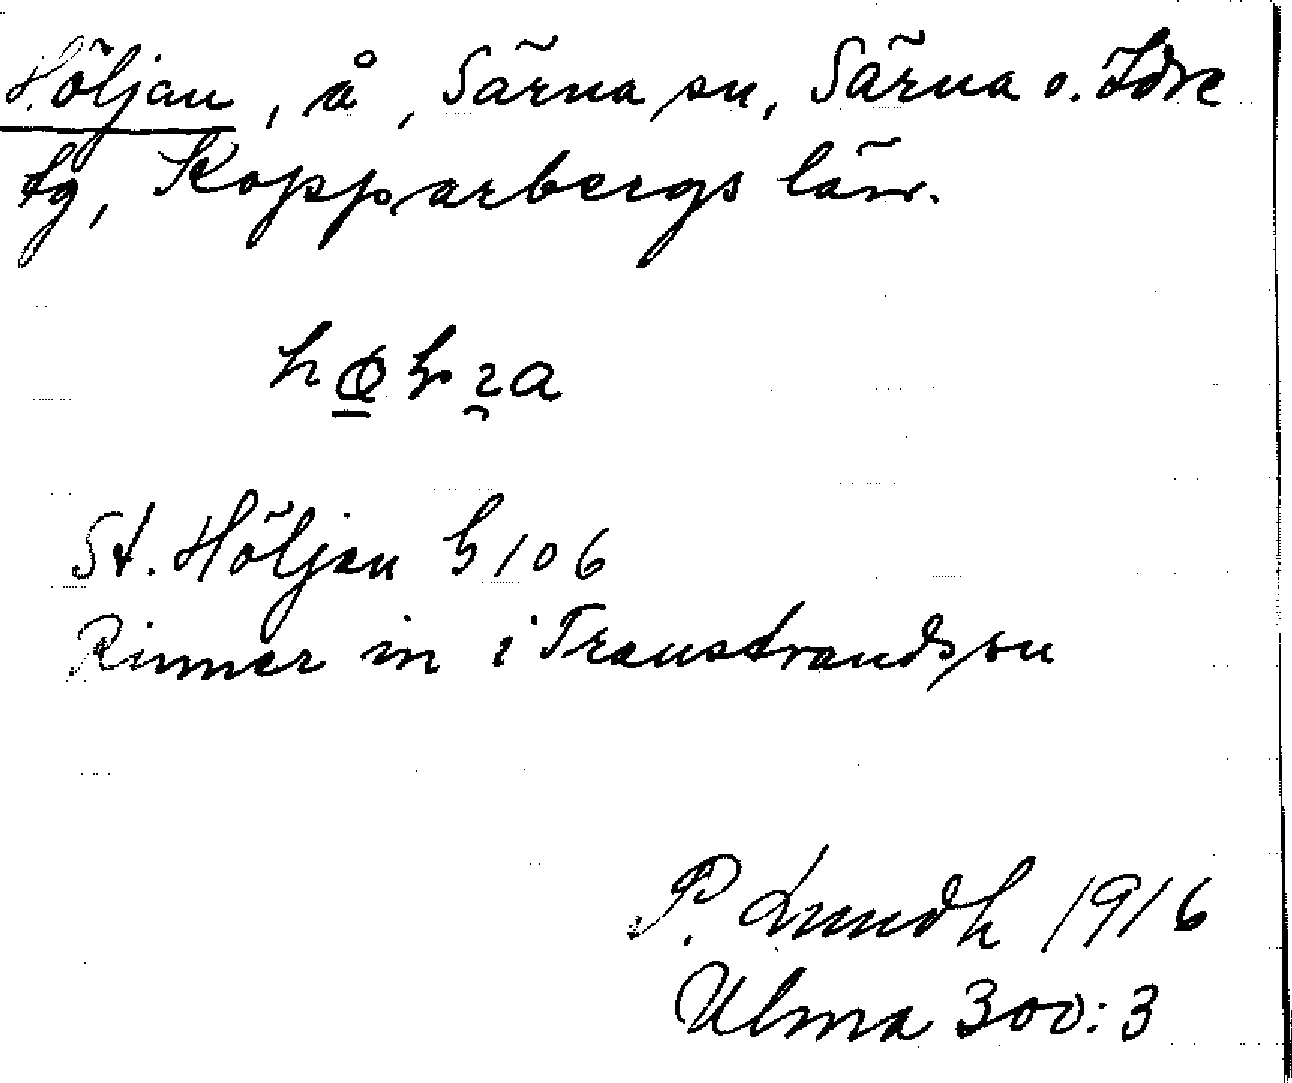 Höljan, å, Särna sn, Särna o. Idre
tg, Kopparbergs län.
St. Höljan h 106
Rinner in i Transtrands sn
P. Lundh 1916
Ulma 300:3